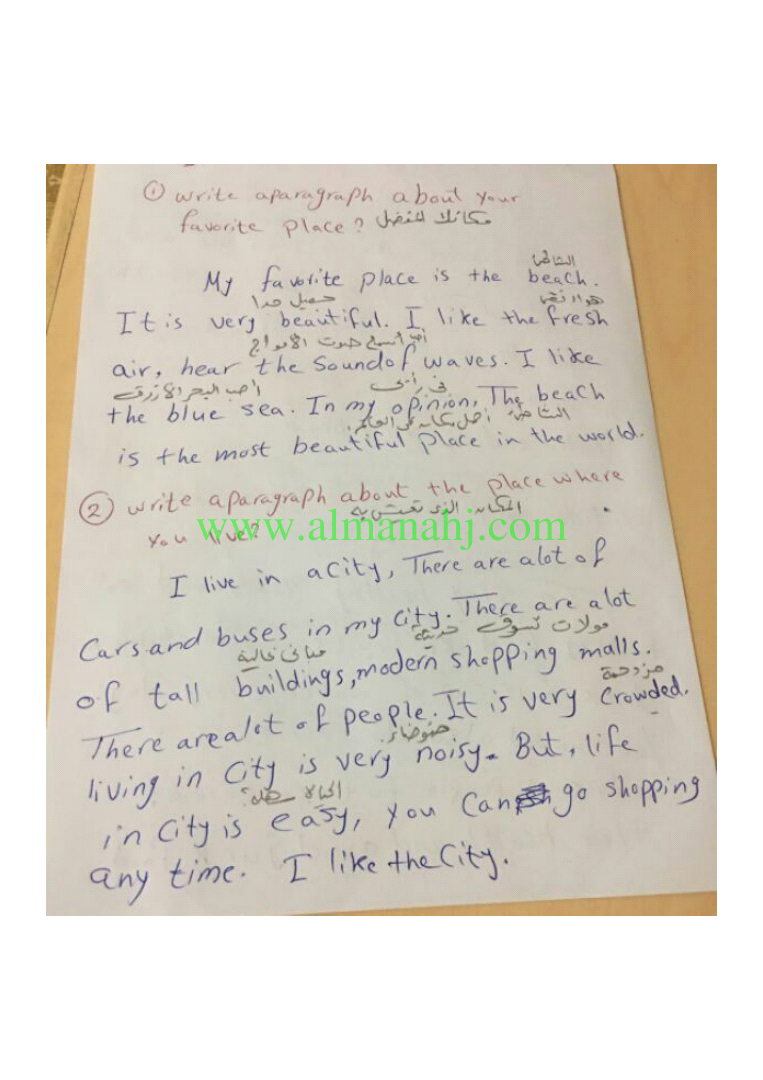 ① write aparagraph about your
favorite place? مكانك المفضل
الشاطئ
My favorite place is the beach.
جميل جدا هواء نقيا
It is very beautiful. I like the fresh
أحب أسمع صوت الأمواج
air, hear the Sound of waves. I like
أحب البحر الأزرق في رأيي
the blue sea. In my opinion, The beach
الشاطئ أجمل مكان في العالم.
is the most beautiful place in the world.
② write aparagraph about the place where
المكان الذى تعيش به
you live?
www.almanahj.com
I live in a City, There are alot of
Cars and buses in my city. There are alot
مولات تسوق حديثة
مبانى عالية
of tall buildings, modern shopping malls.
مزدحمة
There are alot of people. It is very Crowded.
ضوضاء
living in City is very noisy. But, life
الحياة سهلة
in City is easy, you Can go shopping
any time. I like the City.